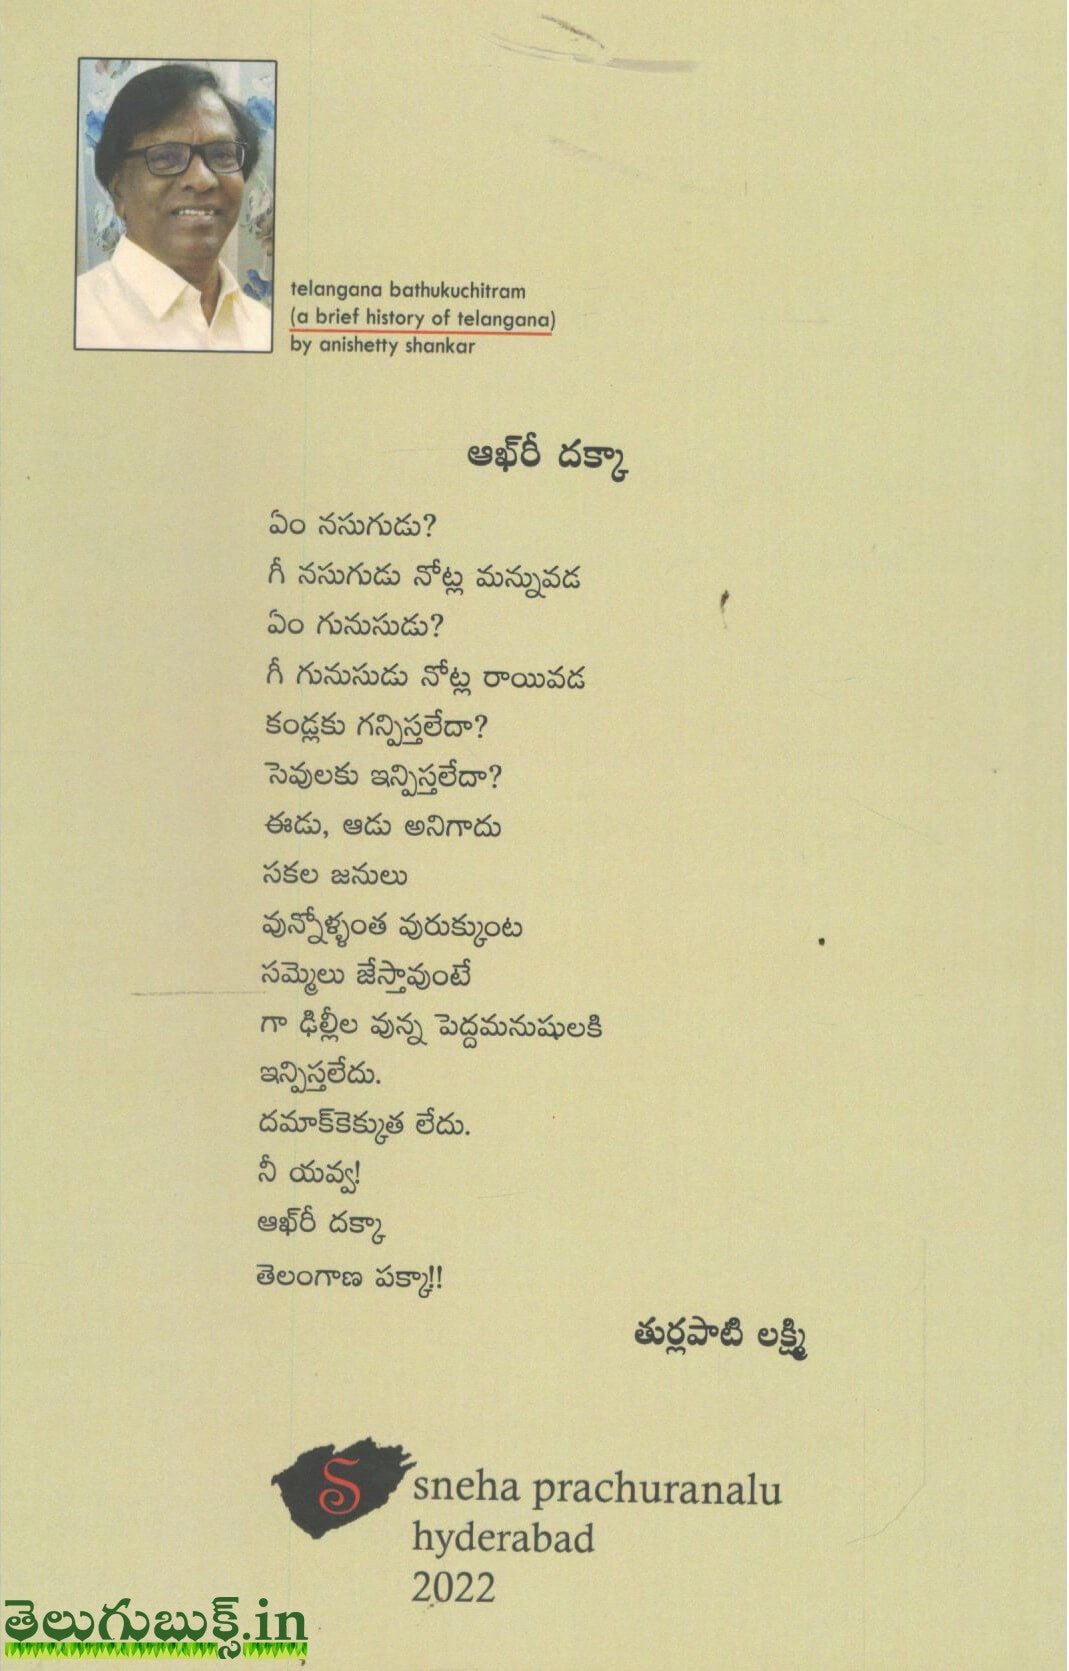 telangana bathukuchitram
(a brief history of telangana)
by anishetty shankar
ఆఖ్‌రీ దక్కా
ఏం నసుగుడు?
గీ నసుగుడు నోట్ల మన్నువడ
ఏం గునుసుడు?
గీ గునుసుడు నోట్ల రాయివడ
కండ్లకు గన్పిస్తలేదా?
సెవులకు ఇన్పిస్తలేదా?
ఈడు, ఆడు అనిగాదు
సకల జనులు
వున్నోళ్ళంత వురుక్కుంట
సమ్మెలు జేస్తావుంటే
గా ఢిల్లీల వున్న పెద్దమనుషులకి
ఇన్పిస్తలేదు.
దమాక్‌కెక్కుత లేదు.
నీ యవ్వ!
ఆఖ్‌రీ దక్కా
తెలంగాణ పక్కా!!
తుర్లపాటి లక్ష్మి
S sneha prachuranalu
hyderabad
2022
తెలుగుబుక్స్.in